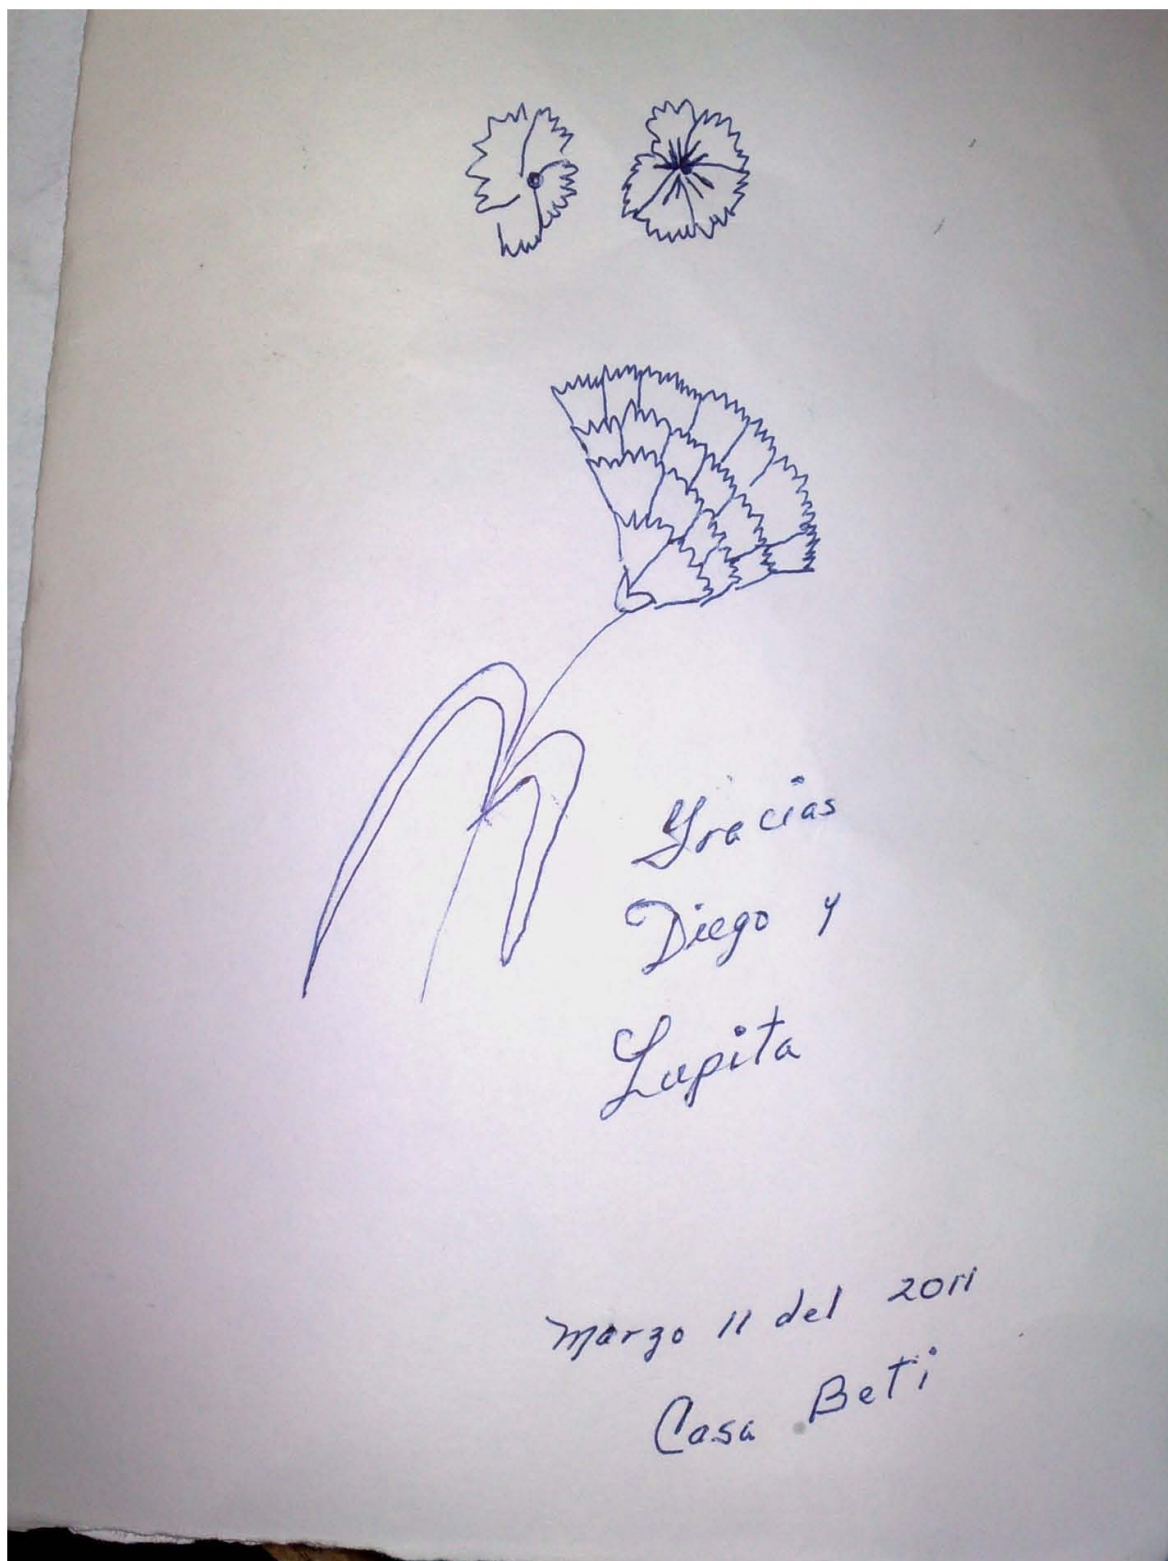 Gracias
Diego y
Lupita
Marzo 11 del 2011
Casa Beti